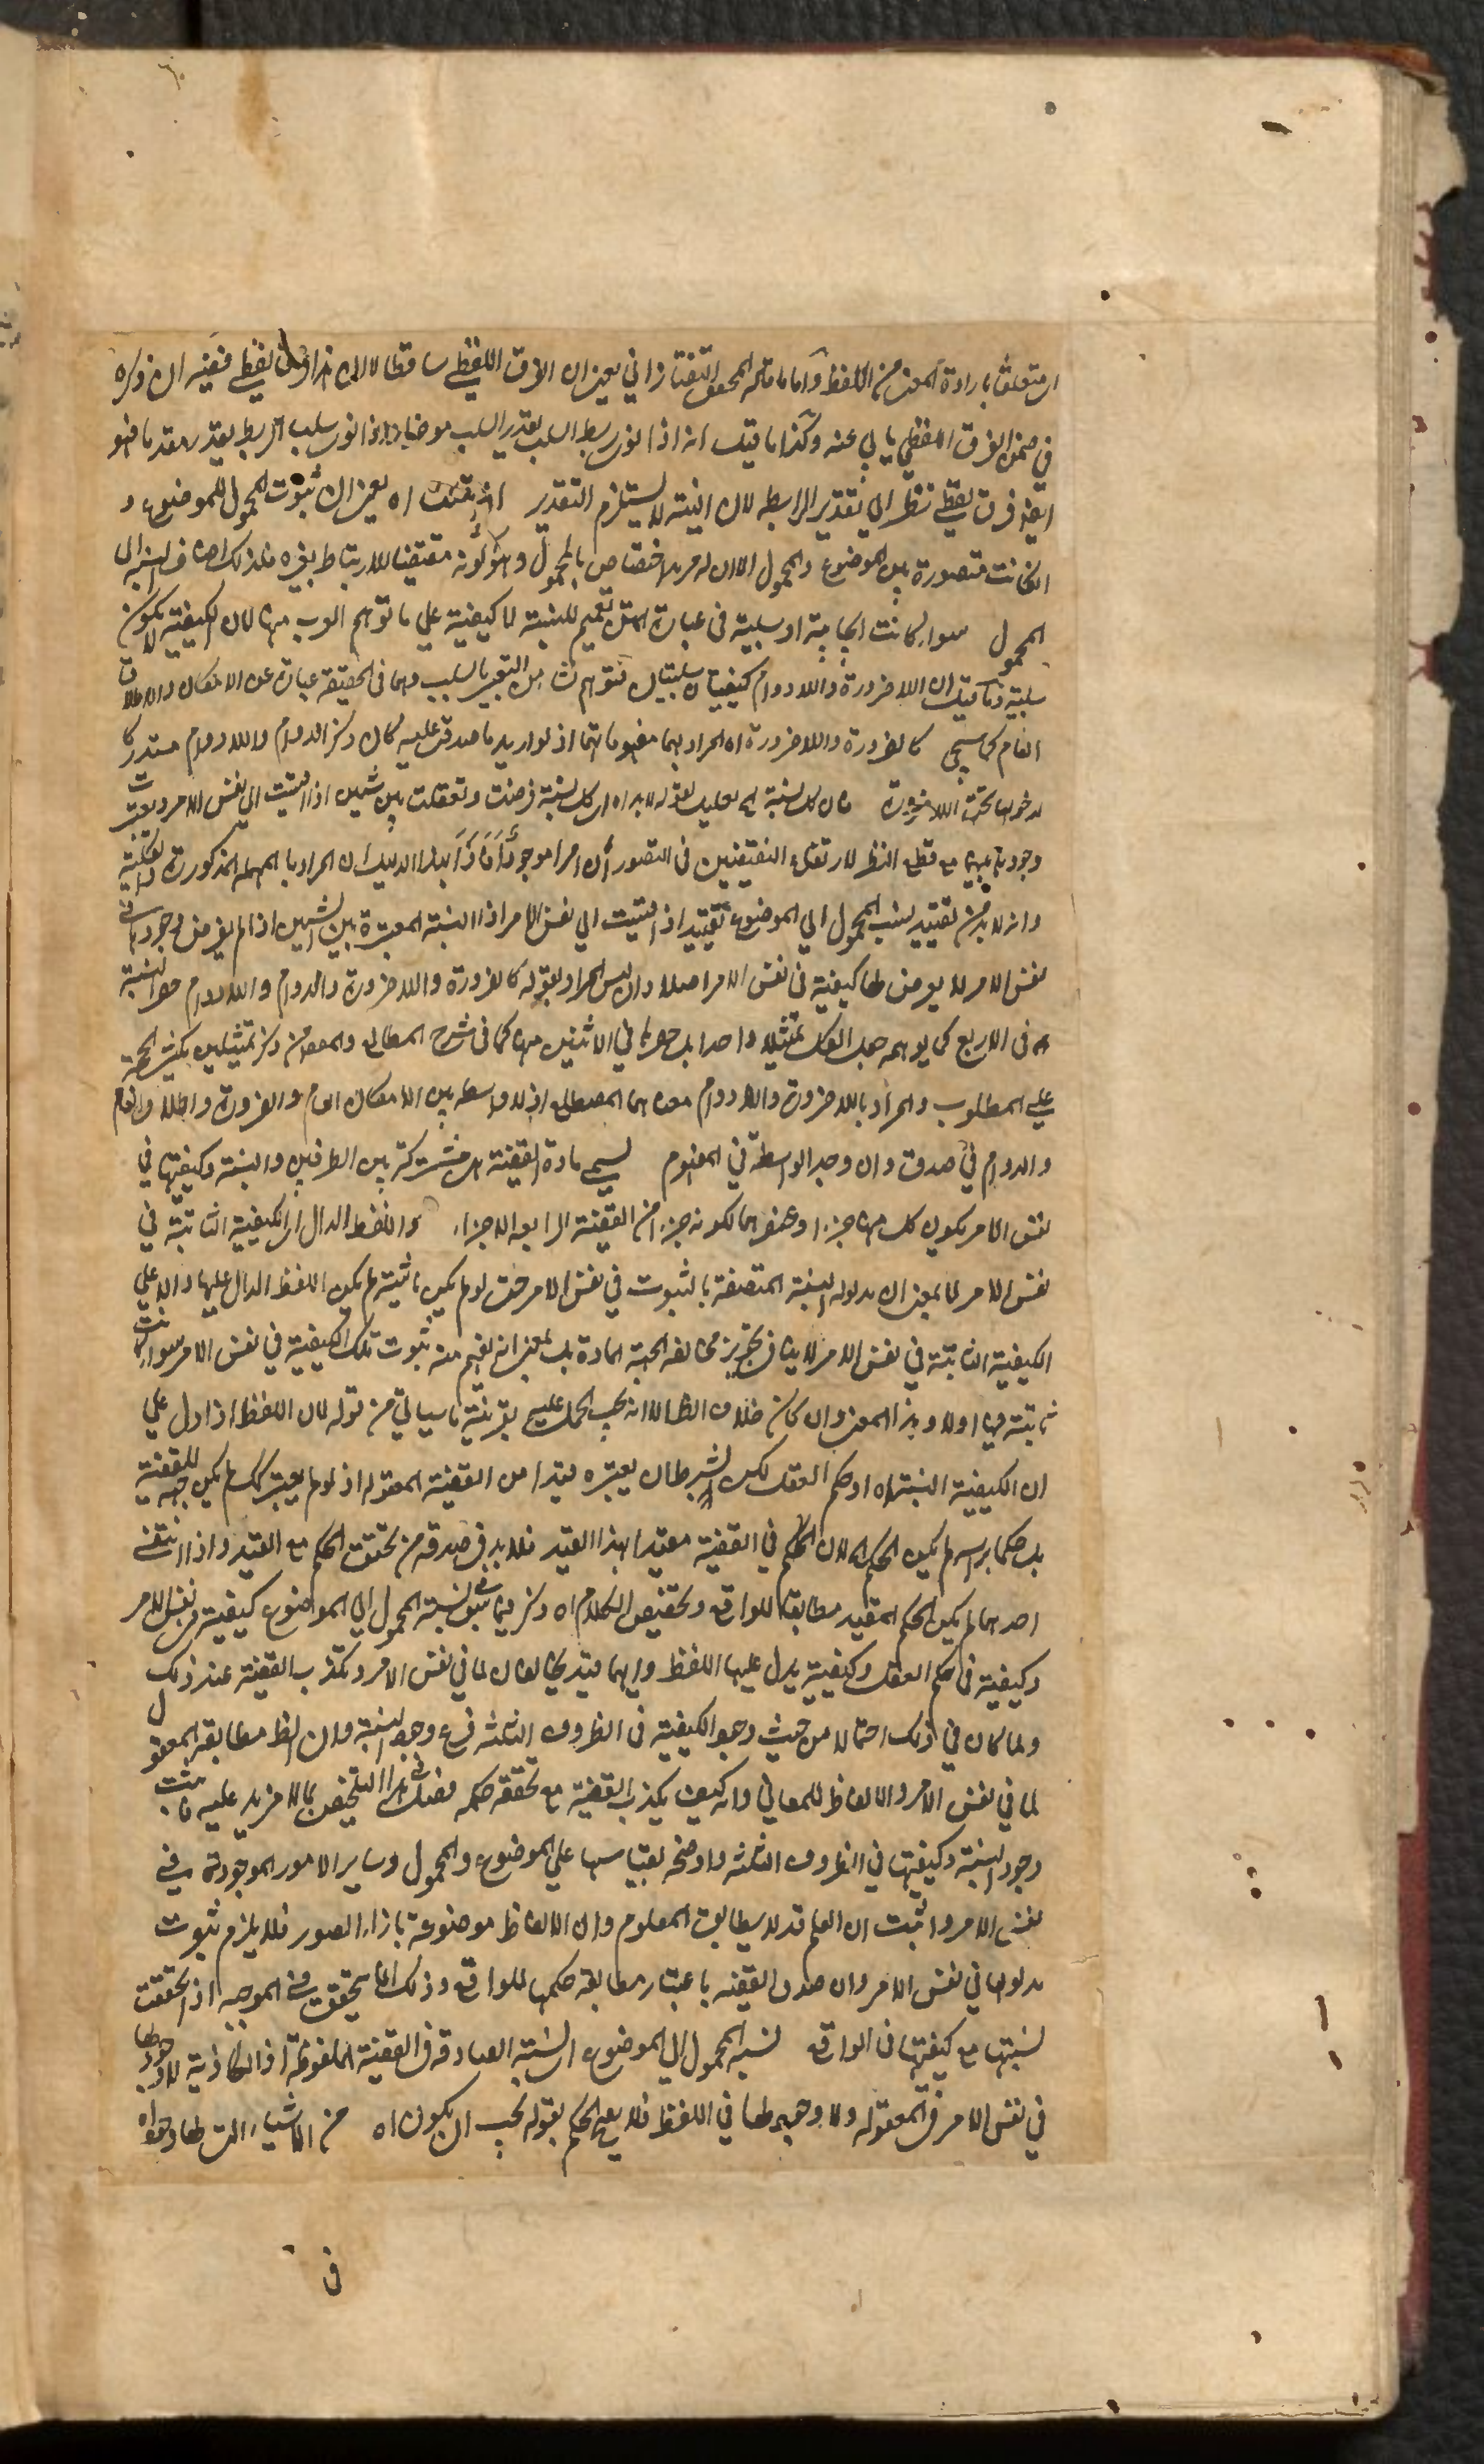 متعلق بارادة المعنى من اللفظ واما ما قاله المحقق التفتازاني يعني ان الفرق اللفظي ساقط لان هذا فرق لفظي ففيه ان ذكره
في ضمن الفرق اللفظي يابى عنه وكذا ما قيل انه اذا نوى ربط السلب بقدر السلب موخرا واذا نوى سلب الربط يقدر مقدما فهو
ايضا فرق لفظي نظرا الى تقدير الرابطة لان النية لا يستلزم التقدير اه يعني ان ثبوت المحمول للموضوع و
ان كانت متصورة بين الموضوع والمحمول الا ان له مزيد اختصاص بالمحمول وهو كونه مقتضيا للارتباط بغيره فلذلك اضاف النسبة الى
المحمول سواء كانت ايجابية او سلبية في عبارة المتن تعميم للنسبة لا كيفية على ما توهم لان الكيفية لا يكون
سلبية وما قيل ان اللاضرورة واللادوام كيفيتان سلبيتان فتوهم نشأ من التعبير بالسلب وهما في الحقيقة عبارة عن الامكان والاطلاق
العام كما سيجئ كالضرورة واللاضرورة اه المراد بهما مفهوماتهما اذ لو اريد ما صدق عليه كان ذكر الدوام واللادوام مستدركا
لدخولهما تحت اللاضرورة فان كل نسبة الخ تعليل لقوله لا بد اه اي كل نسبة فرضت وتعقلت بين شيئين اذا قيست الى نفس الامر
وجودية بينهما مع قطع النظر لارتفع النقيضين في التصور
وانه لا بد من تقييد نسبة المحمول الى الموضوع بقيد اذا قيست الى نفس الامر اذ النسبة المعتبرة بين الشيئين اذا لم يفرض وجودها في
نفس الامر لا يعرض لها كيفية في نفس الامر اصلا وان ليس المراد بقوله كالضرورة واللاضرورة والدوام واللادوام حصر النسبة
في الاربع كما يوهمه جعل الكل تمثيلا واحدا بل حصرها في الاثنين منها كما في شرح المطالع والمقصود من ذكر تمثيلين
على المطلوب والمراد باللاضرورة واللادوام معناهما المصطلح اذ لا واسطة بين الامكان العام والضرورة والاطلاق العام
والدوام في صدق وان وجد الواسطة في المفهوم يسمى مادة القضية اي مشتركة بين الطرفين والنسبة وكيفيتها في
نفس الامر بكون كل منها جزءا وعنصرا لها لكونه جزءا من القضية الرابعة الاجزاء واللفظ الدال اي الكيفية الثابتة في
نفس الامر لا بمعنى ان مدلوله النسبة المتصفة بالثبوت في نفس الامر حتى لو لم يكن ثابتة لم يكن اللفظ الدال عليها دالا على
الكيفية الثابتة في نفس الامر فلا ينافي تجويز مخالفة الجهة المادة بل بمعنى انه يفهم منه ثبوت تلك الكيفية في نفس الامر سواء كانت
ثابتة فيها او لا وهذا المعنى وان كان خلاف الظاهر الا انه يجب الحمل عليه بقرينة ما سياتي من قوله لان اللفظ اذا دل على
ان الكيفية النسبة اه او حكم العقل لكن بشرط ان يعتبره قيدا من القضية المعقولة اذ لو لم يعتبر كذلك لم يكن جهة للقضية
بل حكما برأسه لم يكن الحكم اه لان الحكم في القضية مقيد بهذا القيد فلا بد في صدقه من تحقق الحكم مع القيد واذا انتفى
احدهما لم يكن الحكم المقيد مطابقا للواقع وتحقيق الكلام اه ذكر فيما سبق ان لنسبة المحمول الى الموضوع كيفية في نفس الامر
وكيفية في حكم العقل وكيفية يدل عليها اللفظ وانهما قد يخالفان لما في نفس الامر وتكذب القضية عند ذلك
ولما كان في ذلك اجمالا من حيث وجود الكيفية في الظروف الثلثة فرع وجود النسبة وان الظ مطابقة المعقول
لما في نفس الامر والالفاظ للمعاني وانه كيف يكذب القضية مع تحقق حكمه فصل هذا التلخيص بما لا مزيد عليه فاثبت
وجود النسبة وكيفيتها في الظروف الثلثة واوضحه بقياسها على الموضوع والمحمول وساير الامور الموجودة في
نفس الامر واثبت ان العلم قد لا يطابق المعلوم وان الالفاظ موضوعة بازاء الصور فلا يلزم ثبوت
مدلولها في نفس الامر وان صدق القضية باعتبار مطابقة حكمها للواقع وذلك انما يتحقق في الموجبة اذا تحققت
نسبتها مع كيفيتها في الواقع نسبة المحمول الى الموضوع اي النسبة الصادقة في القضية الملفوظة اذ الكاذبة لا وجود لها
في نفس الامر في المعقولة ولا وجود لها في اللفظ فلا يصح الحكم بقوله يجب ان يكون اه من الاشياء التي لها وجود اه
في